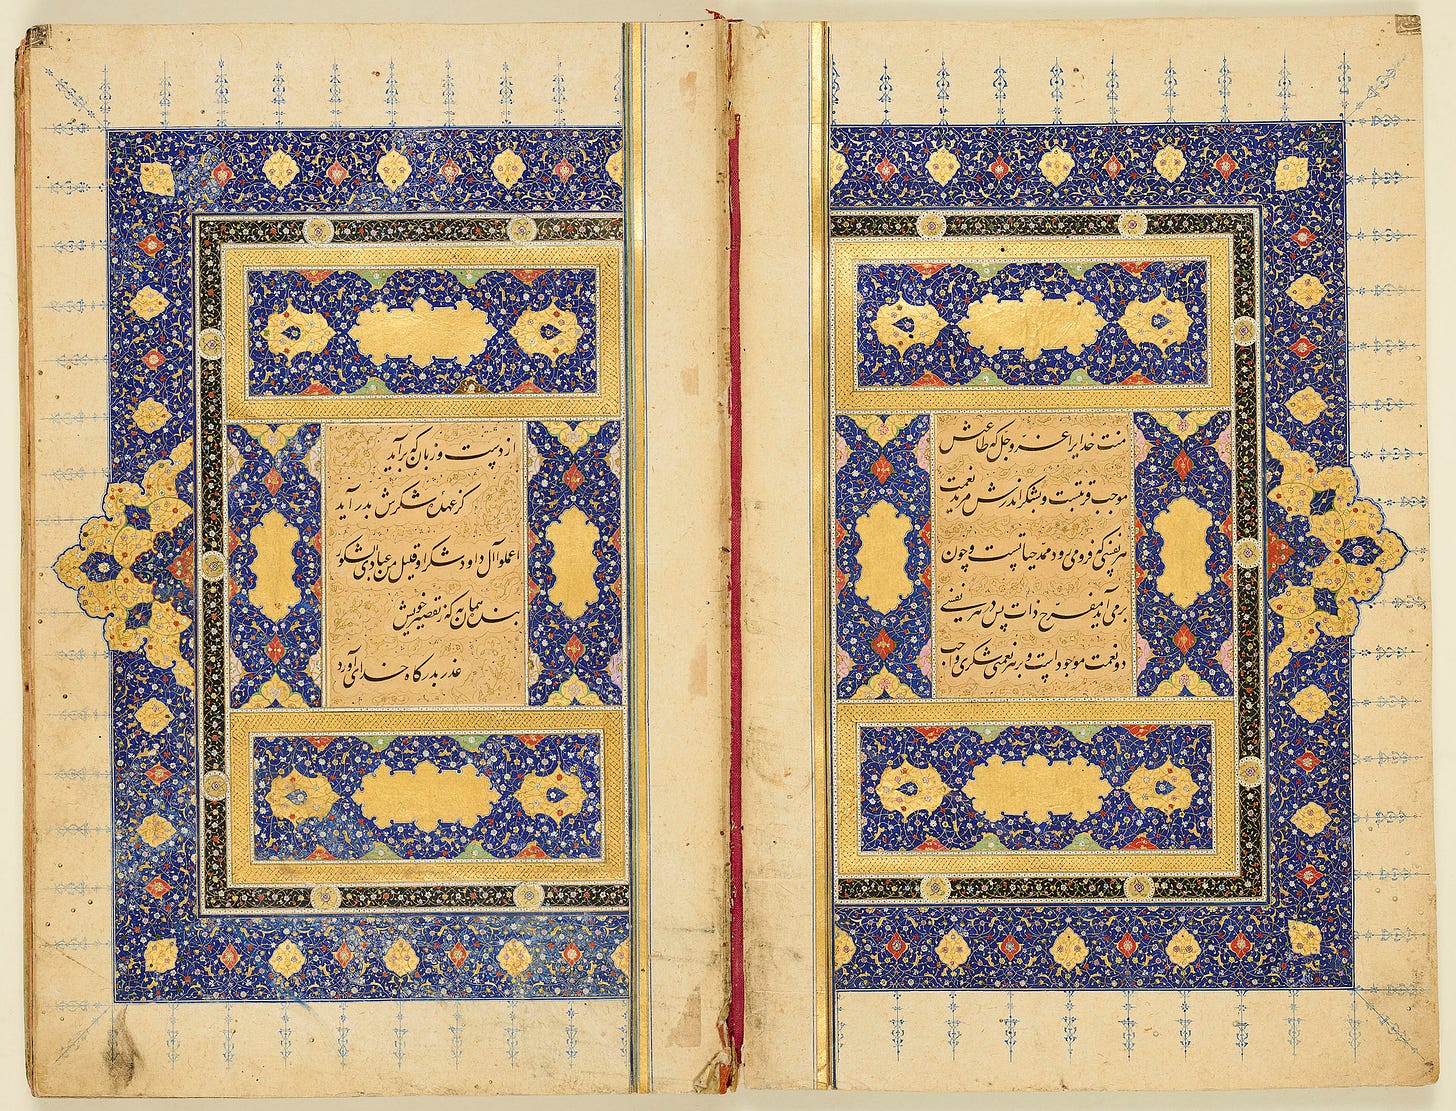 منت خدایرا عز و جل که طاعتش
موجب قربتست و بشکر اندرش مزید نعمت
هر نفسی که فرو می رود ممد حیاتست و چون
برمی آید مفرح ذات پس در هر نفسی
دو نعمت موجود است و بر هر نعمتی شکری واجب
از دست و زبان که برآید
کز عهده شکرش بدر آید
اعملوا آل داود شکرا و قلیل من عبادی الشکور
بنده همان به که ز تقصیر خویش
عذر بدرگاه خدای آورد